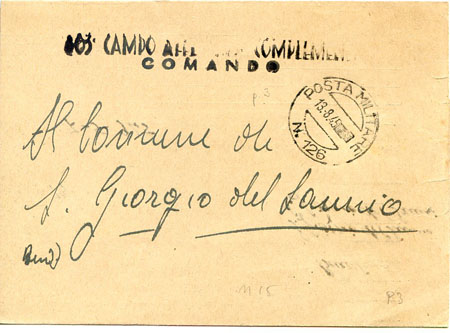 CAMPO COMPLEMEN
COMANDO
p 3
POSTA MILITARE
13.8.45
N. 126
Al Comune di
S. Giorgio del Sannio
11 15
P3